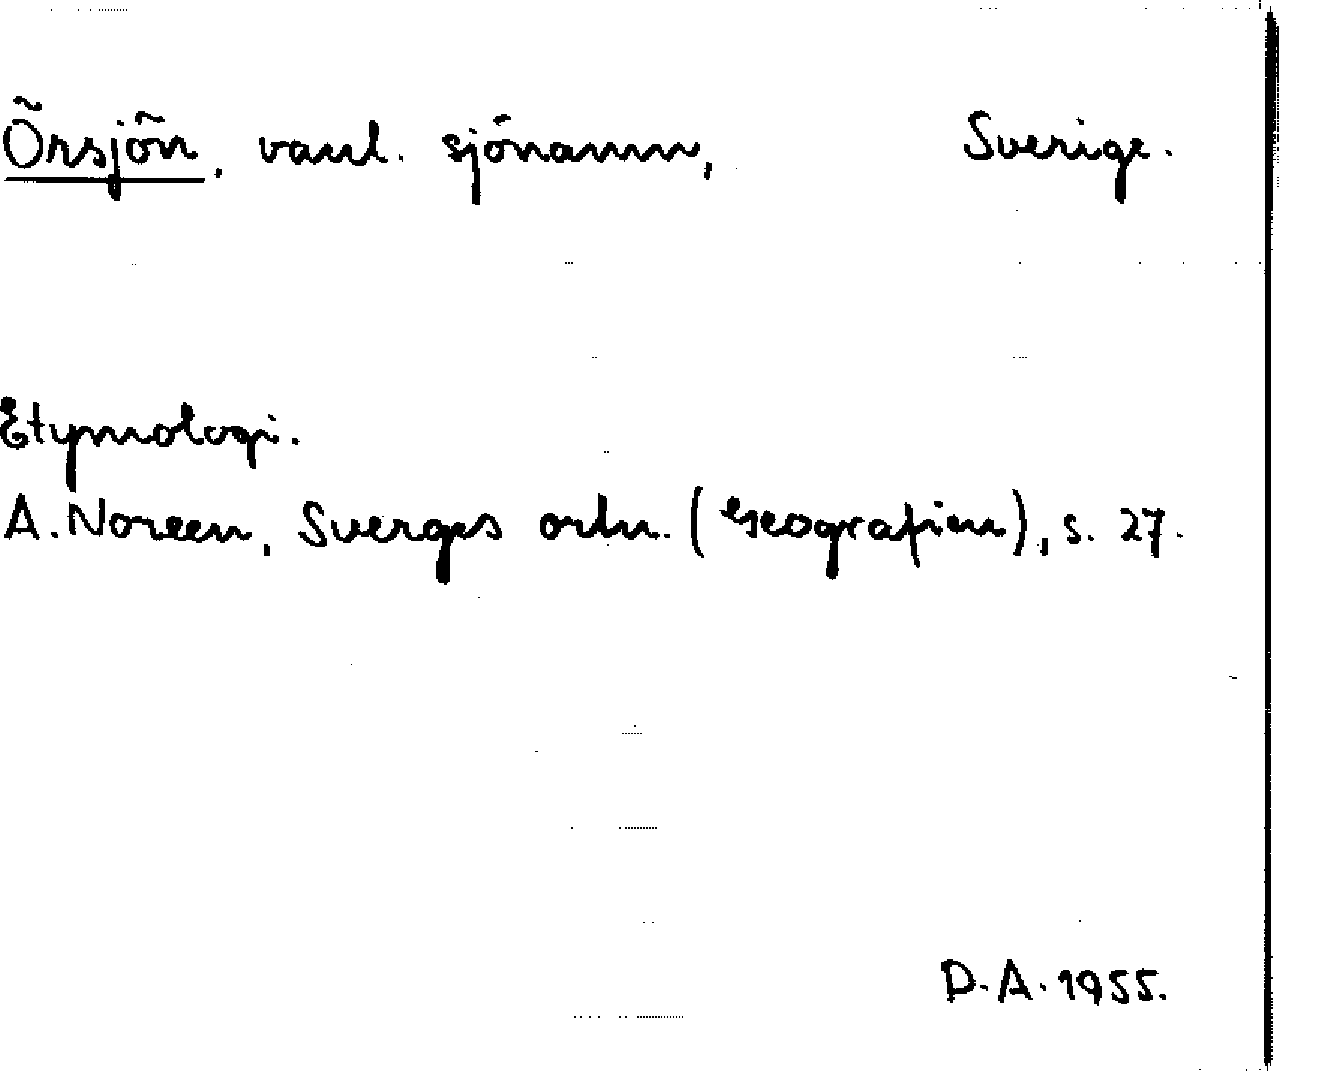 Örsjön, vanl. sjönamn, Sverige.
Etymologi.
A. Noreen, Sverges ortn. (Geografien), s. 27.
D.A. 1955.